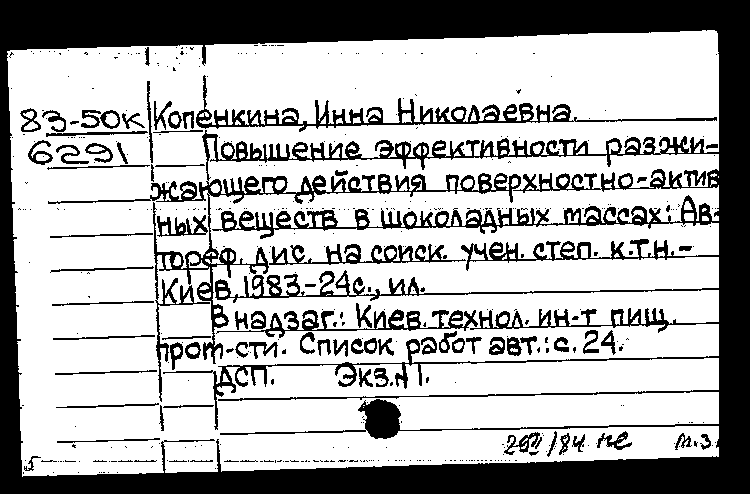 83-50к Копенкина, Инна Николаевна.
6291 Повышение эффективности разжи-
жающего действия поверхностно-актив
ных веществ в шоколадных массах: Ав-
тореф. дис. на соиск. учен. степ. к.т.н.-
Киев, 1983.-24с., ил.
В надзаг.: Киев. технол. ин-т пищ.
пром-сти. Список работ авт.: с. 24.
ДСП. Экз. №1.
/84 не т.з.
5